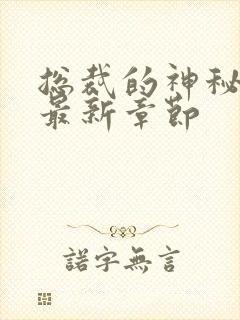 总裁的神秘
最新章节
諾字無言